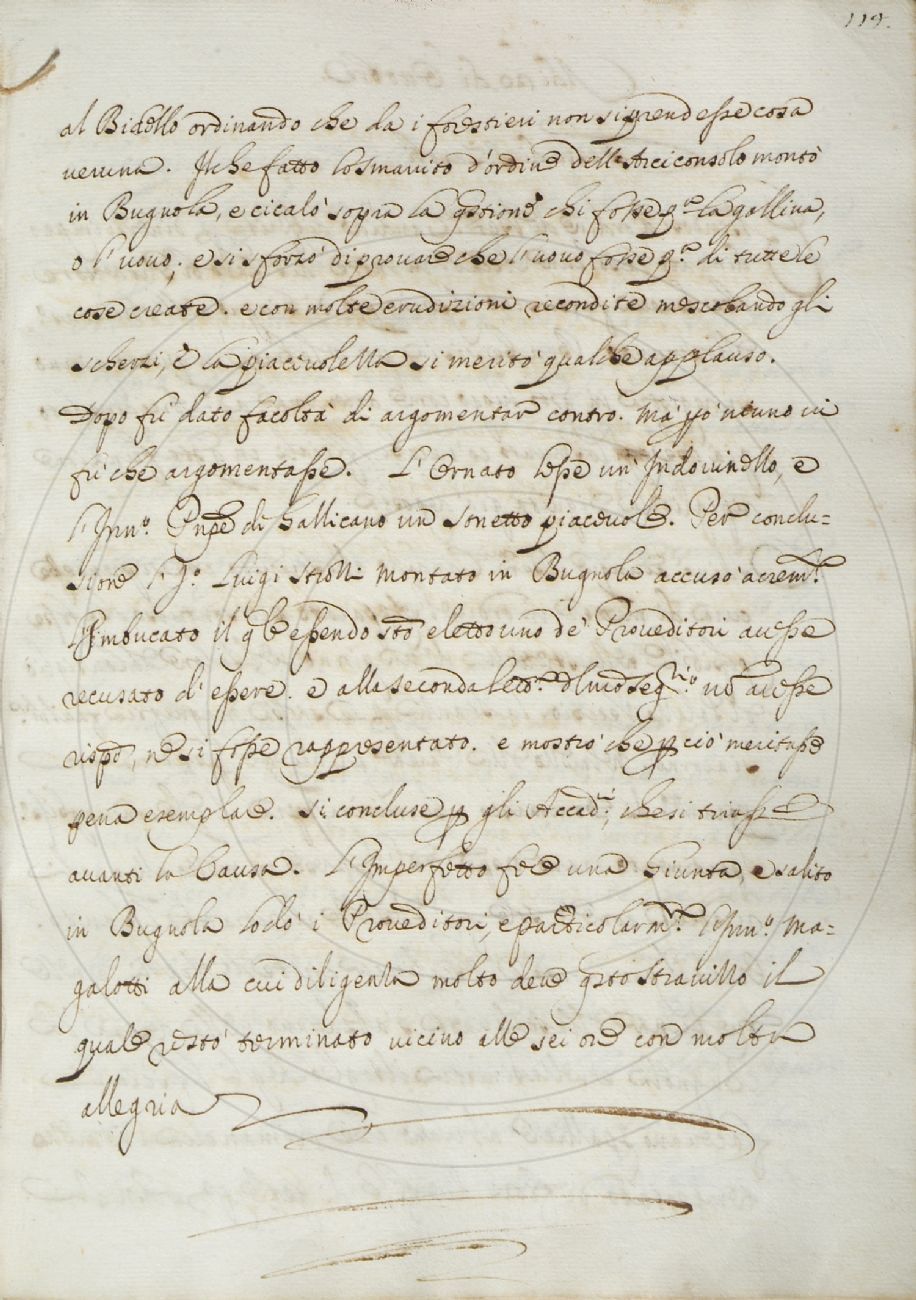 119.
al Bidello ordinando che da i forestieri non si prendesse cosa
veruna. Il che fatto lo Smarrito d'ordine dell'Arciconsolo montò
in Bugnola, e cicalò sopra la qstione chi fosse pª la gallina,
o l'uovo; e si sforzò di provare che l'uovo fosse pº di tutte le
cose create. e con molte erudizioni recondite mescolando gli
scherzi, e la piacevolezza si meritò qualche applauso.
Dopo fù dato facoltà di argomentar contro. Mà pò niuno vi
fù che argomentasse. L'Ornato lesse un' Indovinello, e
l'Innº. Pnpe di Gallicano un sonetto piacevole. Per conclu-
sione l'Iº. Luigi Strozzi montato in Bugnola accusò acremte.
l'Imbucato il qle essendo sto eletto uno de' Proveditori avesse
recusato d'essere. e alla seconda del Segrio nō avesse
rispō, ne si fosse rappresentato. e mostrò che p ciò meritasse
pena esemplare. Si concluse p gli Accadi, che si tirasse
avanti la Causa. L'Imperfetto fece una Giunta, e salito
in Bugnola lodò i Proveditori, e particolarmte. l'Innº. Ma-
galotti alla cui diligenza molto deve qsto stravizzo il
quale restò terminato vicino alle sei ore con molta
allegria